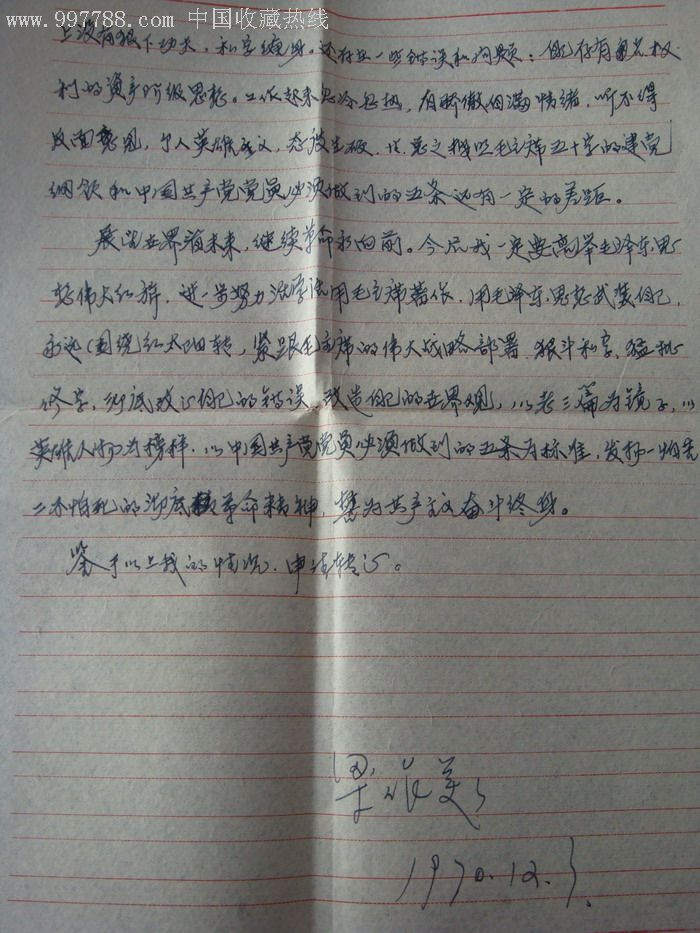 www.997788.com 中国收藏热线
上没有狠下功夫，私字缠身。还存在一些错误和问题：自己存有争名权
利的资产阶级思想。工作起来忽冷忽热，有骄傲自满情绪，听不得
反面意见，个人英雄主义，态度生硬。总之按照毛主席五十字的建党
纲领和中国共产党党员必须做到的五条还有一定的差距。
展望世界看未来，继续革命永向前。今后我一定要高举毛泽东思
想伟大红旗，进一步努力活学活用毛主席著作，用毛泽东思想武装自己，
永远围绕红太阳转，紧跟毛主席的伟大战略部署，狠斗私字，猛批
修字，彻底改正自己的错误，改造自己的世界观，以老三篇为镜子，以
英雄人物为榜样，以中国共产党党员必须做到的五条为标准，发扬一不怕苦
二不怕死的彻底革命精神，誓为共产主义奋斗终身。
鉴于以上我的情况，申请转正。
1970.12.3.